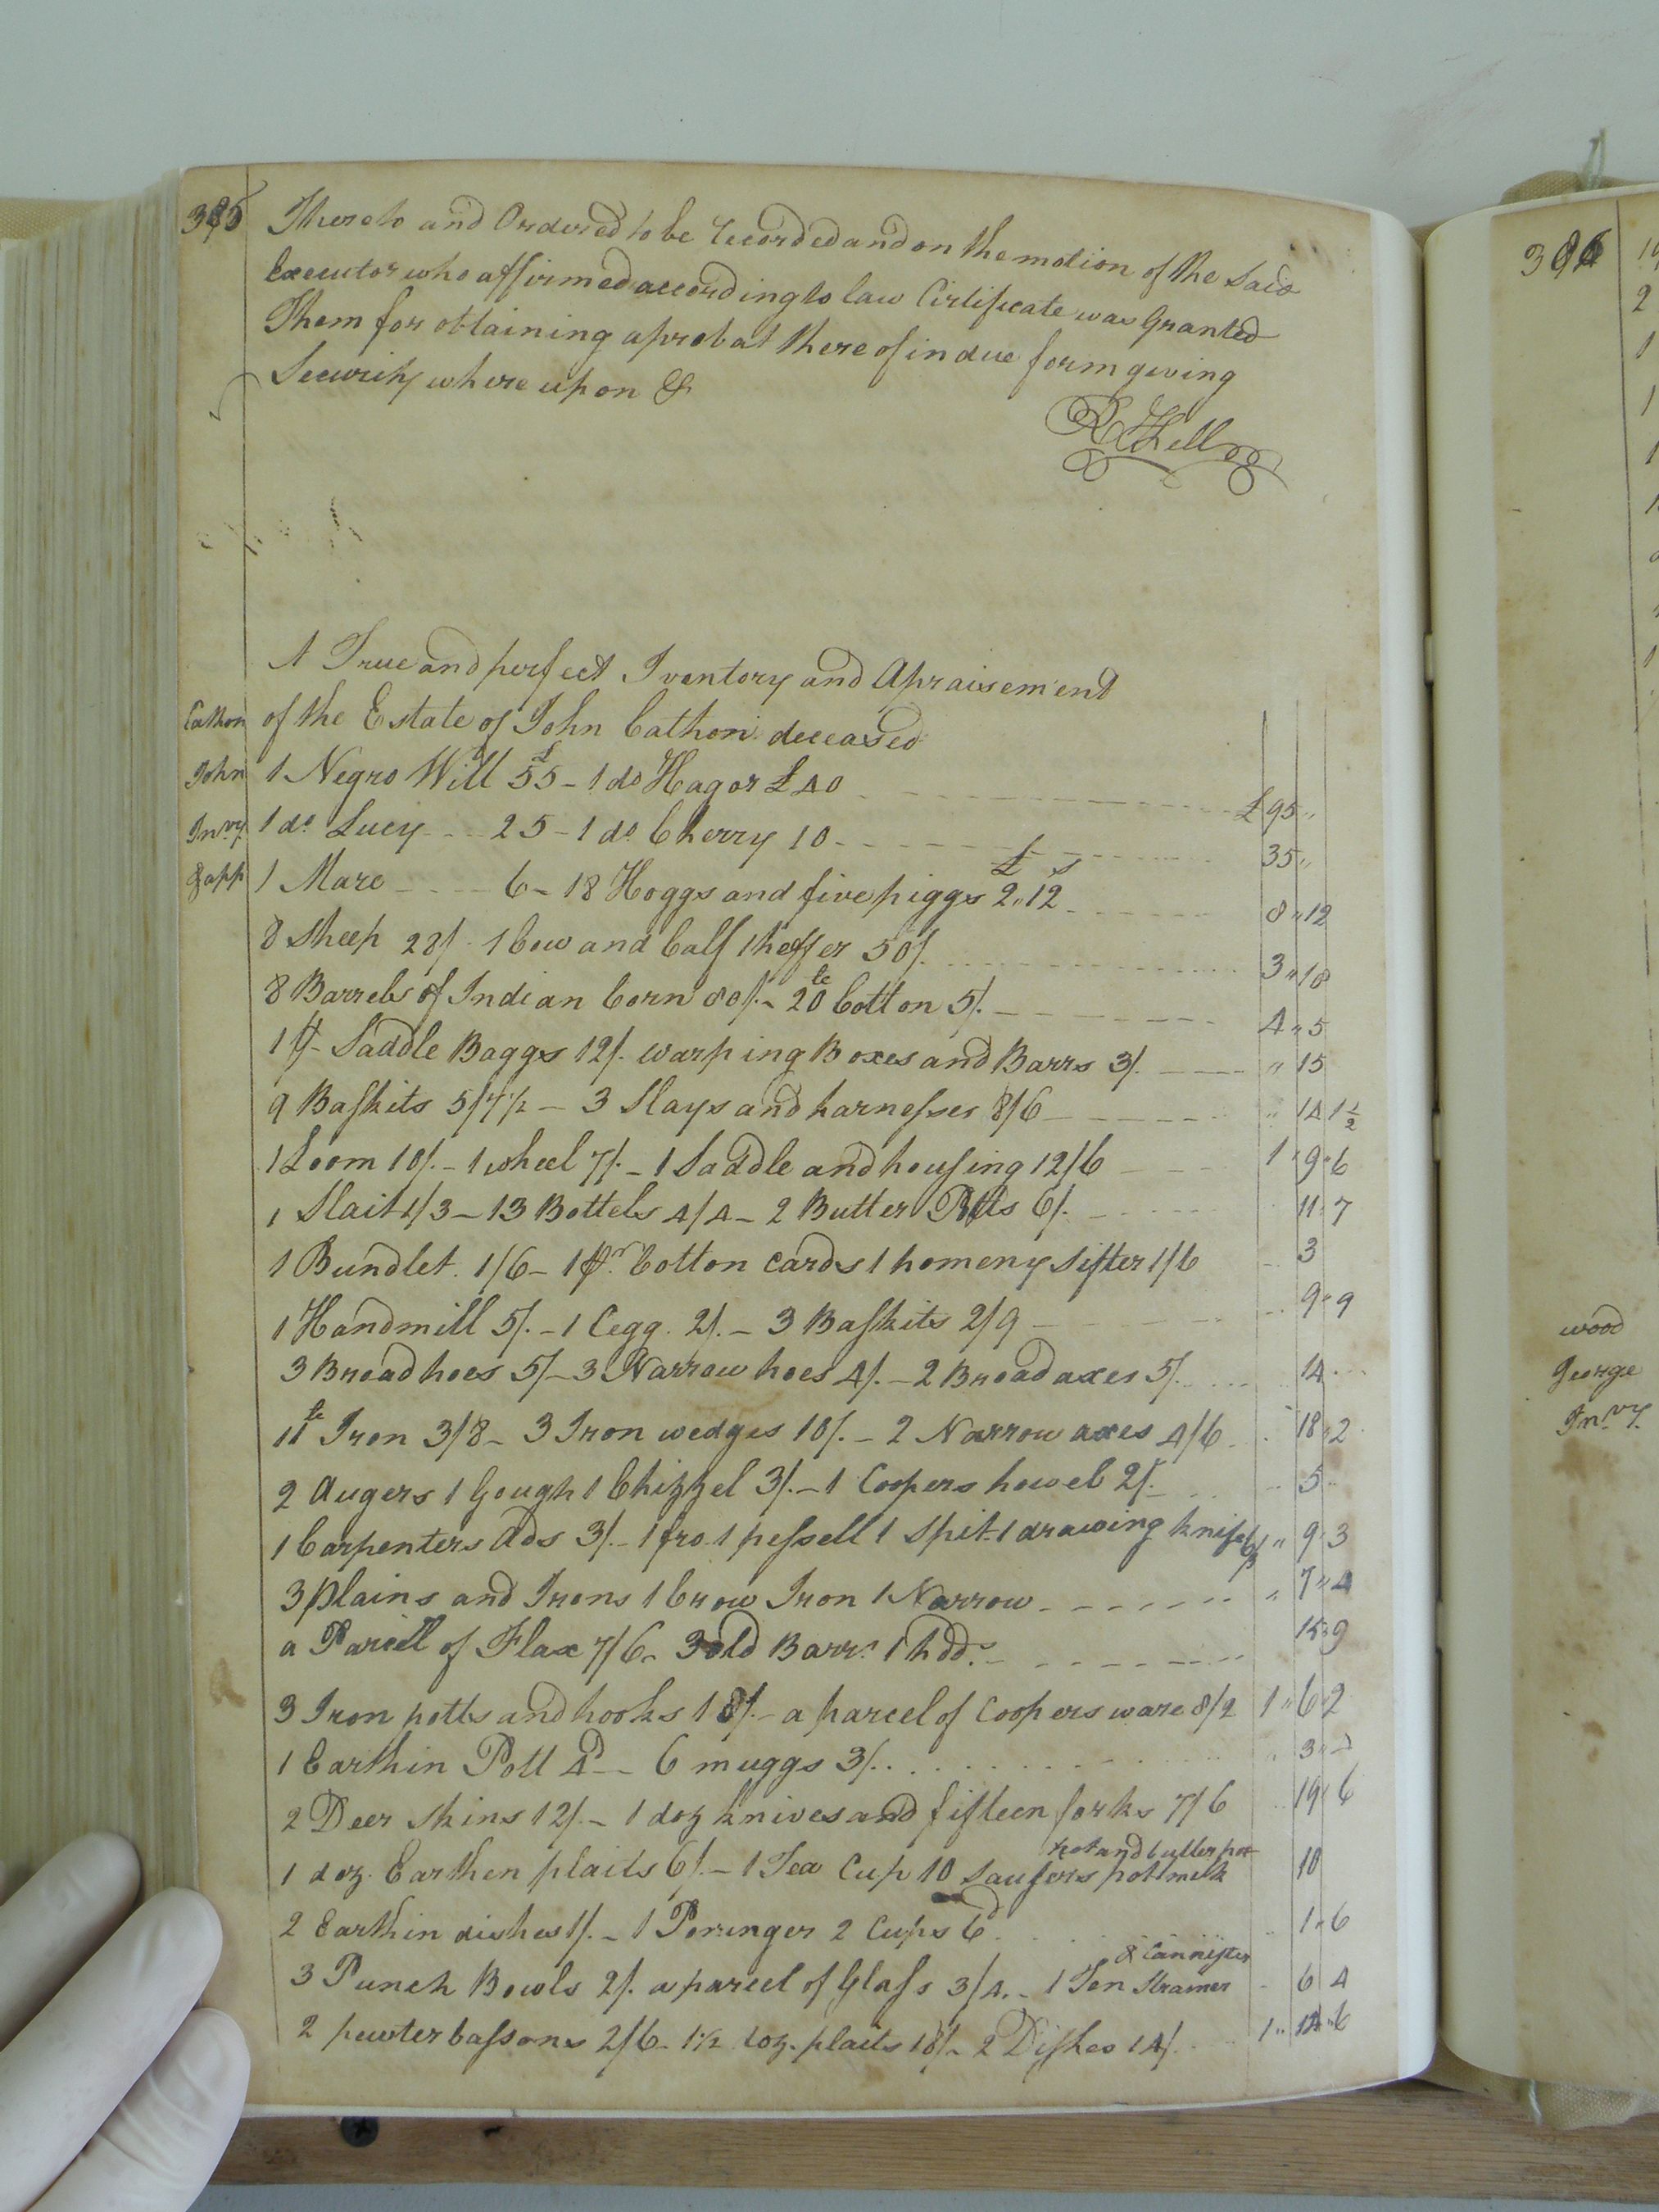 385 Thereto and Ordered to be recorded and on the motion of the Said
Executor who affirmed according to law Cirtificate was Granted
Them for obtaining a probat there of in due form geving
Security where upon &
A True and perfect Iventory and Apraisement
Cathon of the Estate of John Cathon deceased
John 1 Negro Will £55 - 1 do Hagor £40 £ 95 "
Invy 1 do Lucy 25 - 1 do Cherry 10 35 "
& app 1 Mare 6 - 18 Hoggs and five piggs £2 " 12s 8 " 12
8 Sheep 28/ - 1 Cow and Calf 1 heffer 50/. 3 " 18
8 Barrels of Indian Corn 80/. - 20 lb Cotton 5/. 4 " 5
1 pr Saddle Baggs 12/. warping Boxes and Barrs 3/. " 15
9 Baskits 5/7½ - 3 Slays and harnesses 8/6 " 14 1½
1 Loom 10/. - 1 wheel 7/. - 1 Saddle and housing 12/6 1 " 9 " 6
1 Slait 1/3 - 13 Bottels 4/4 - 2 Butter Potts 6/. 11 " 7
1 Rundlet. 1/6 - 1 pr. Cotton Cards 1 homeny Sifter 1/6 3
1 Handmill 5/. - 1 Cegg. 2/. - 3 Baskits 2/9 9 " 9
3 Broad hoes 5/ - 3 Narrow hoes 4/. - 2 Broad axes 5/. 14
11 lb Iron 3/8 - 3 Iron wedges 10/. - 2 Narrow axes 4/6 18 " 2
2 Augers 1 Gough 1 Chizzel 3/. - 1 Coopers howel 2/. 5
1 Carpenters Ads 3/. - 1 fro 1 pessell 1 Spit 1 drawing knife 6/3 " 9 " 3
3 plains and Irons 1 Crow Iron 1 Narrow " 7 " 4
a Parcell of Flax 7/6 - 3 old Barrs 1 hdd. 15 " 9
3 Iron potts and hooks 18/. - a parcel of Coopers ware 8/2 1 " 6 " 2
1 Earthin Pott 4d - 6 muggs 3/. 3 "
2 Deer Skins 12/. - 1 doz knives and fifteen forks 7/6 19 " 6
pot and butter pot
1 doz. Earthen plaits 6/. - 1 Tea Cup 10 Saufers pott milk 10
2 Earthin dishes 1/. - 1 Poringer 2 Cups 6d 1 " 6
& Cannister
3 Punch Bowls 2/. a parcel of Glass 3/4. - 1 Ten Strainer 6 4
2 pewter bassons 2/6 - 1½ doz. plaits 18/. 2 Dishes 14/. 1 " 14 " 6
386
wood
George
Invy.